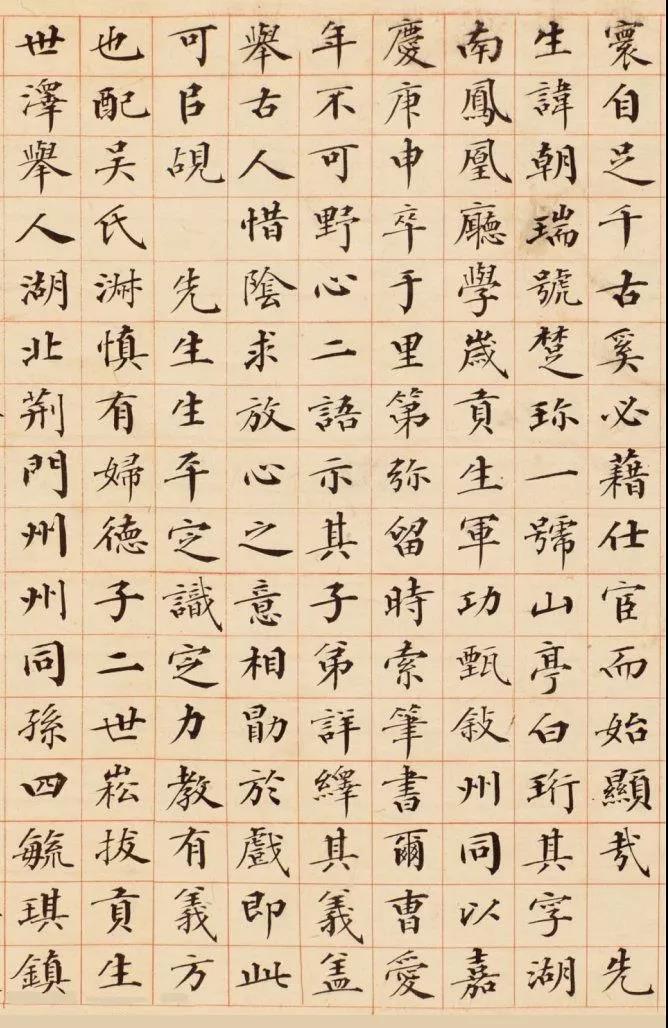 寰自足千古奚必藉仕宦而始顯哉　先
生諱朝瑞號楚珎一號山亭白珩其字湖
南鳳凰廳學歲貢生軍功甄敍州同以嘉
慶庚申卒于里第弥留時索筆書爾曺愛
年不可野心二語示其子弟詳繹其義盖
舉古人惜陰求放心之意相勖於戲即此
可㠯覘　先生生平定識定力教有義方
也配吴氏淋慎有婦德子二世崧拔貢生
世澤舉人湖北荆門州州同孫四毓琪鎮